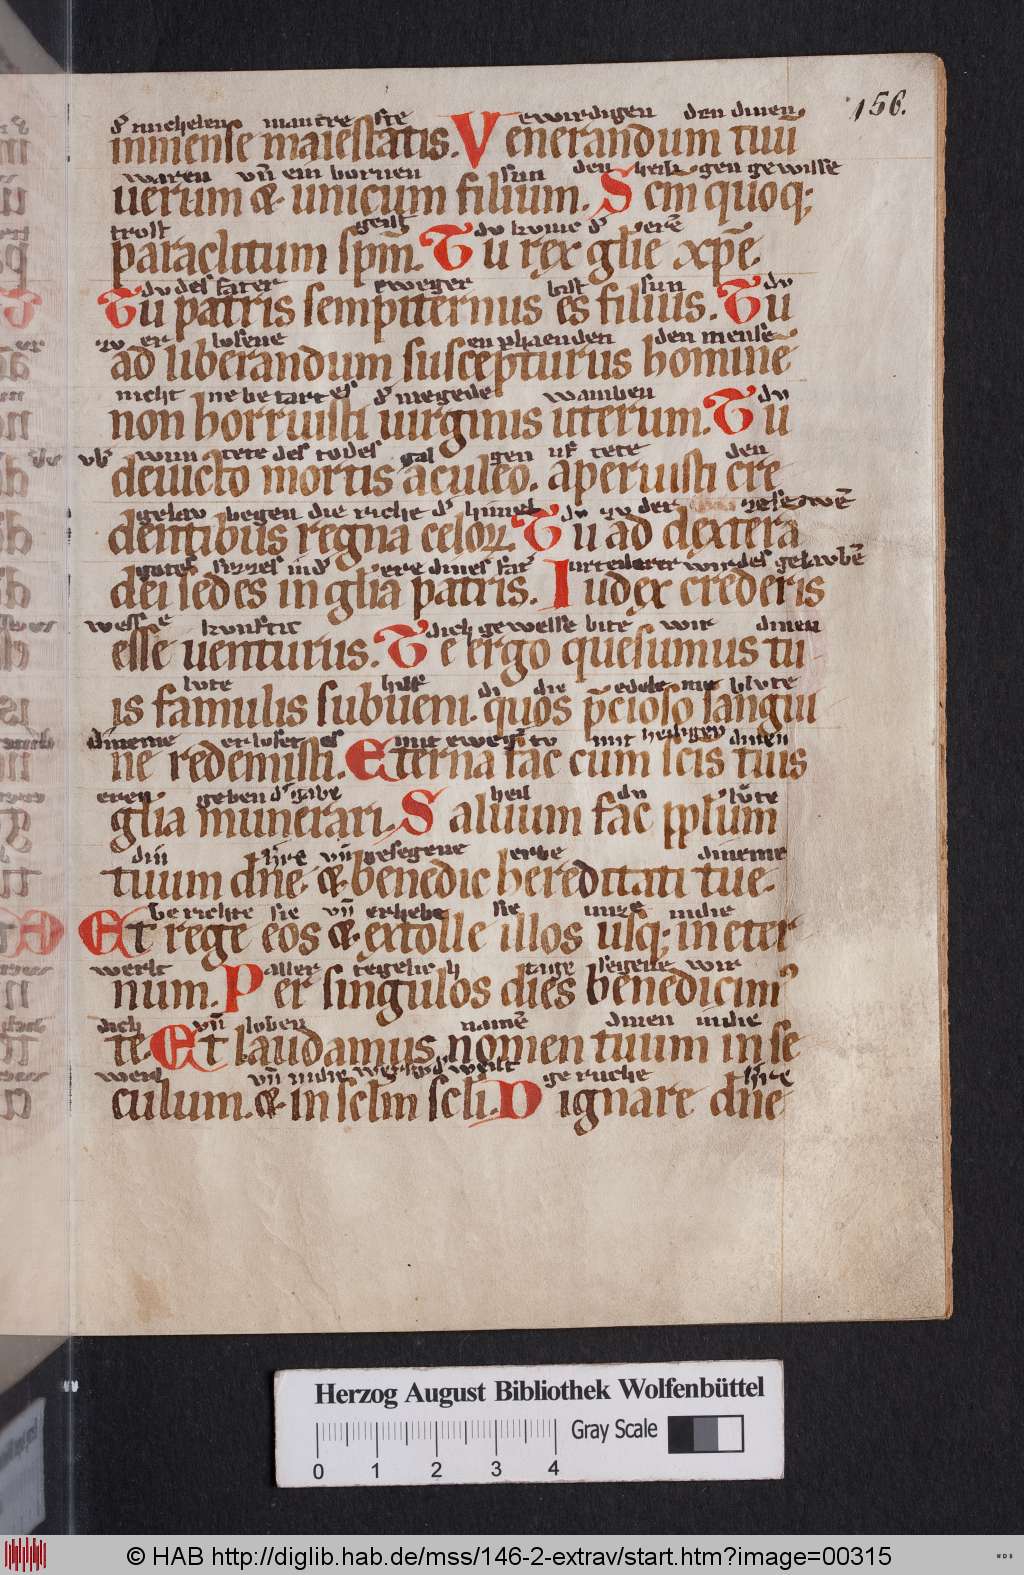 156.
đ michelen mancre ste ewirdigen den dinen
immense maiestatis. Venerandum tuū
waren vn̄ ein bornen sun den heili gen gewisse
uerum & unicum filium. Scm quoq;
trost geist du kunic đ erē
paraclitum spm̄. Tu rex glie xpē.
du des fater eweger bist sun du
Tu patris sempiternus es filius. Tu
zu er losene en phaenden den mensē
ad liberandum suscepturus hominē
nicht ne be tart es đ megede wamben du
non horruisti uirginis uterum. Tu
vb' wun tete des todes gal gen uf tete den
deuicto mortis aculeo. aperuisti cre
gelau begen die riche đ himel du zu der zesewē
dentibus regna celoꝝ. Tu ad dextera
gotes sizzes in đ ere dines fat' urteilerer wirdes gelaubē
dei sedes in glia patris. Iudex crederis
wesse kunftic dich gewesse bite wir dinen
esse uenturus. Te ergo quesumus tu
lute hilf di die edele me blute
is famulis subueni. quos p̄cioso sangui
dineme erlosest es mit eweg' tu mit heiligen dinen
ne redemisti. Eterna fac cum scis tuis
eren geben đ gabe heil du lute
glia munerari. Saluum fac pplum
din h're vn̄ gesegene erbe dineme
tuum dn̄e. & benedic hereditati tue.
be richte sie vn̄ erhebe sie unze indie
Et rege eos & extolle illos usq; in eter
werlt aller tegelich tage segene wir
num. Per singulos dies benedicim'
dich vn̄ loben namē dinen indie
te. Et laudamus nomen tuum in se
werl vn̄ indie werlt đ werlt ge ruche h're
culum. & in sclm scli. Dignare dn̄e
Herzog August Bibliothek Wolfenbüttel
Gray Scale
0 1 2 3 4
© HAB http://diglib.hab.de/mss/146-2-extrav/start.htm?image=00315